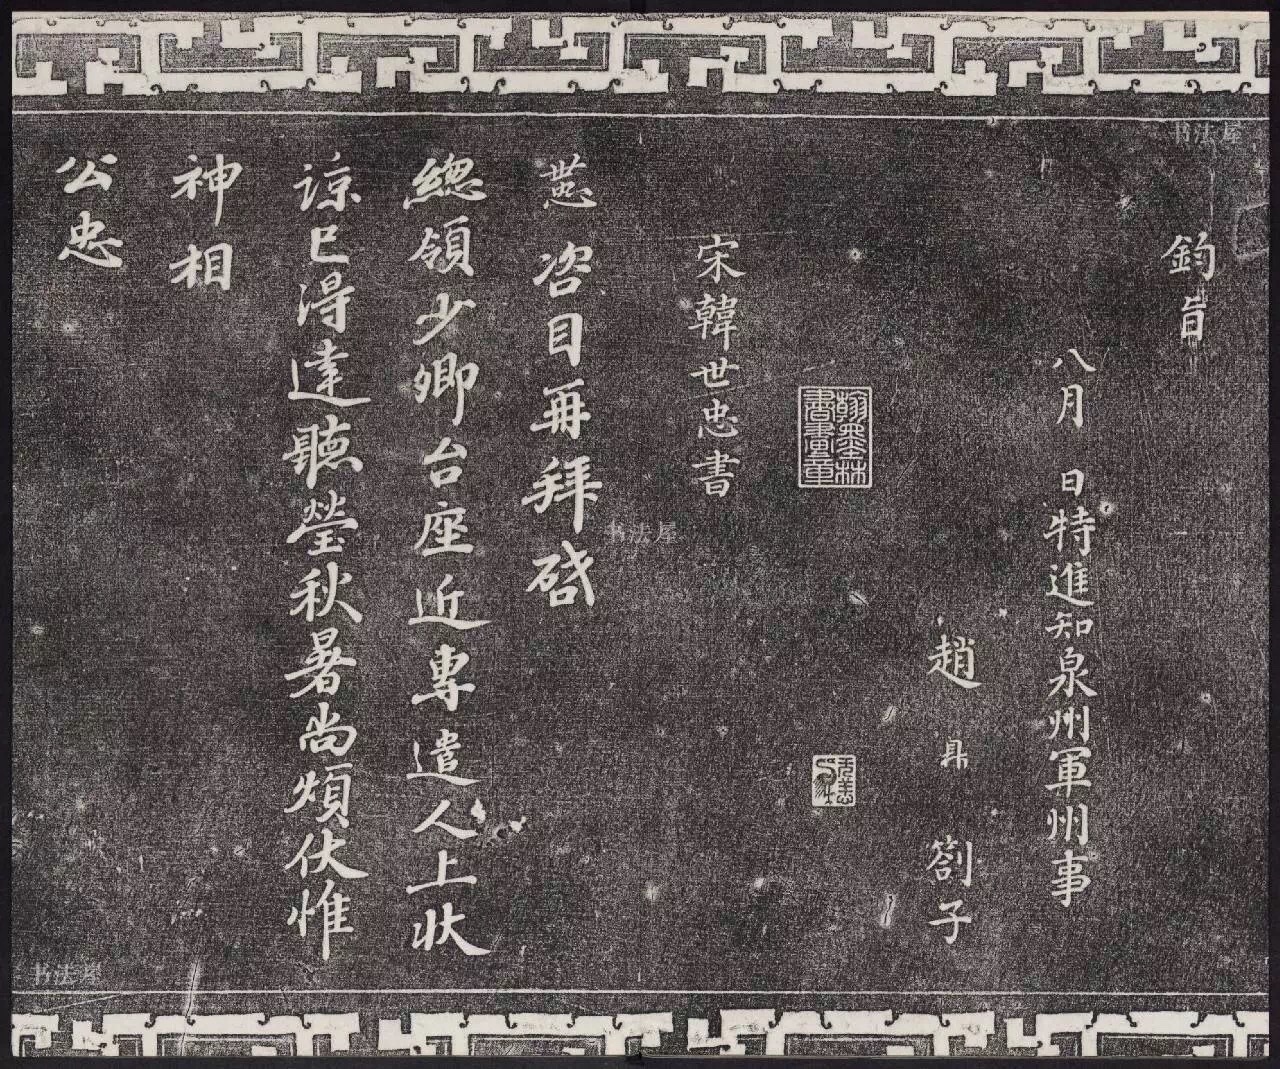 鈞旨
八月　日特進知泉州軍州事
趙鼎劄子
宋韓世忠書
世忠 咨目再拜啓
總領少卿台座近專遣人上狀
諒已得達聽瑩秋暑尚煩伏惟
神相
公忠
书法屋
书法屋
书法屋